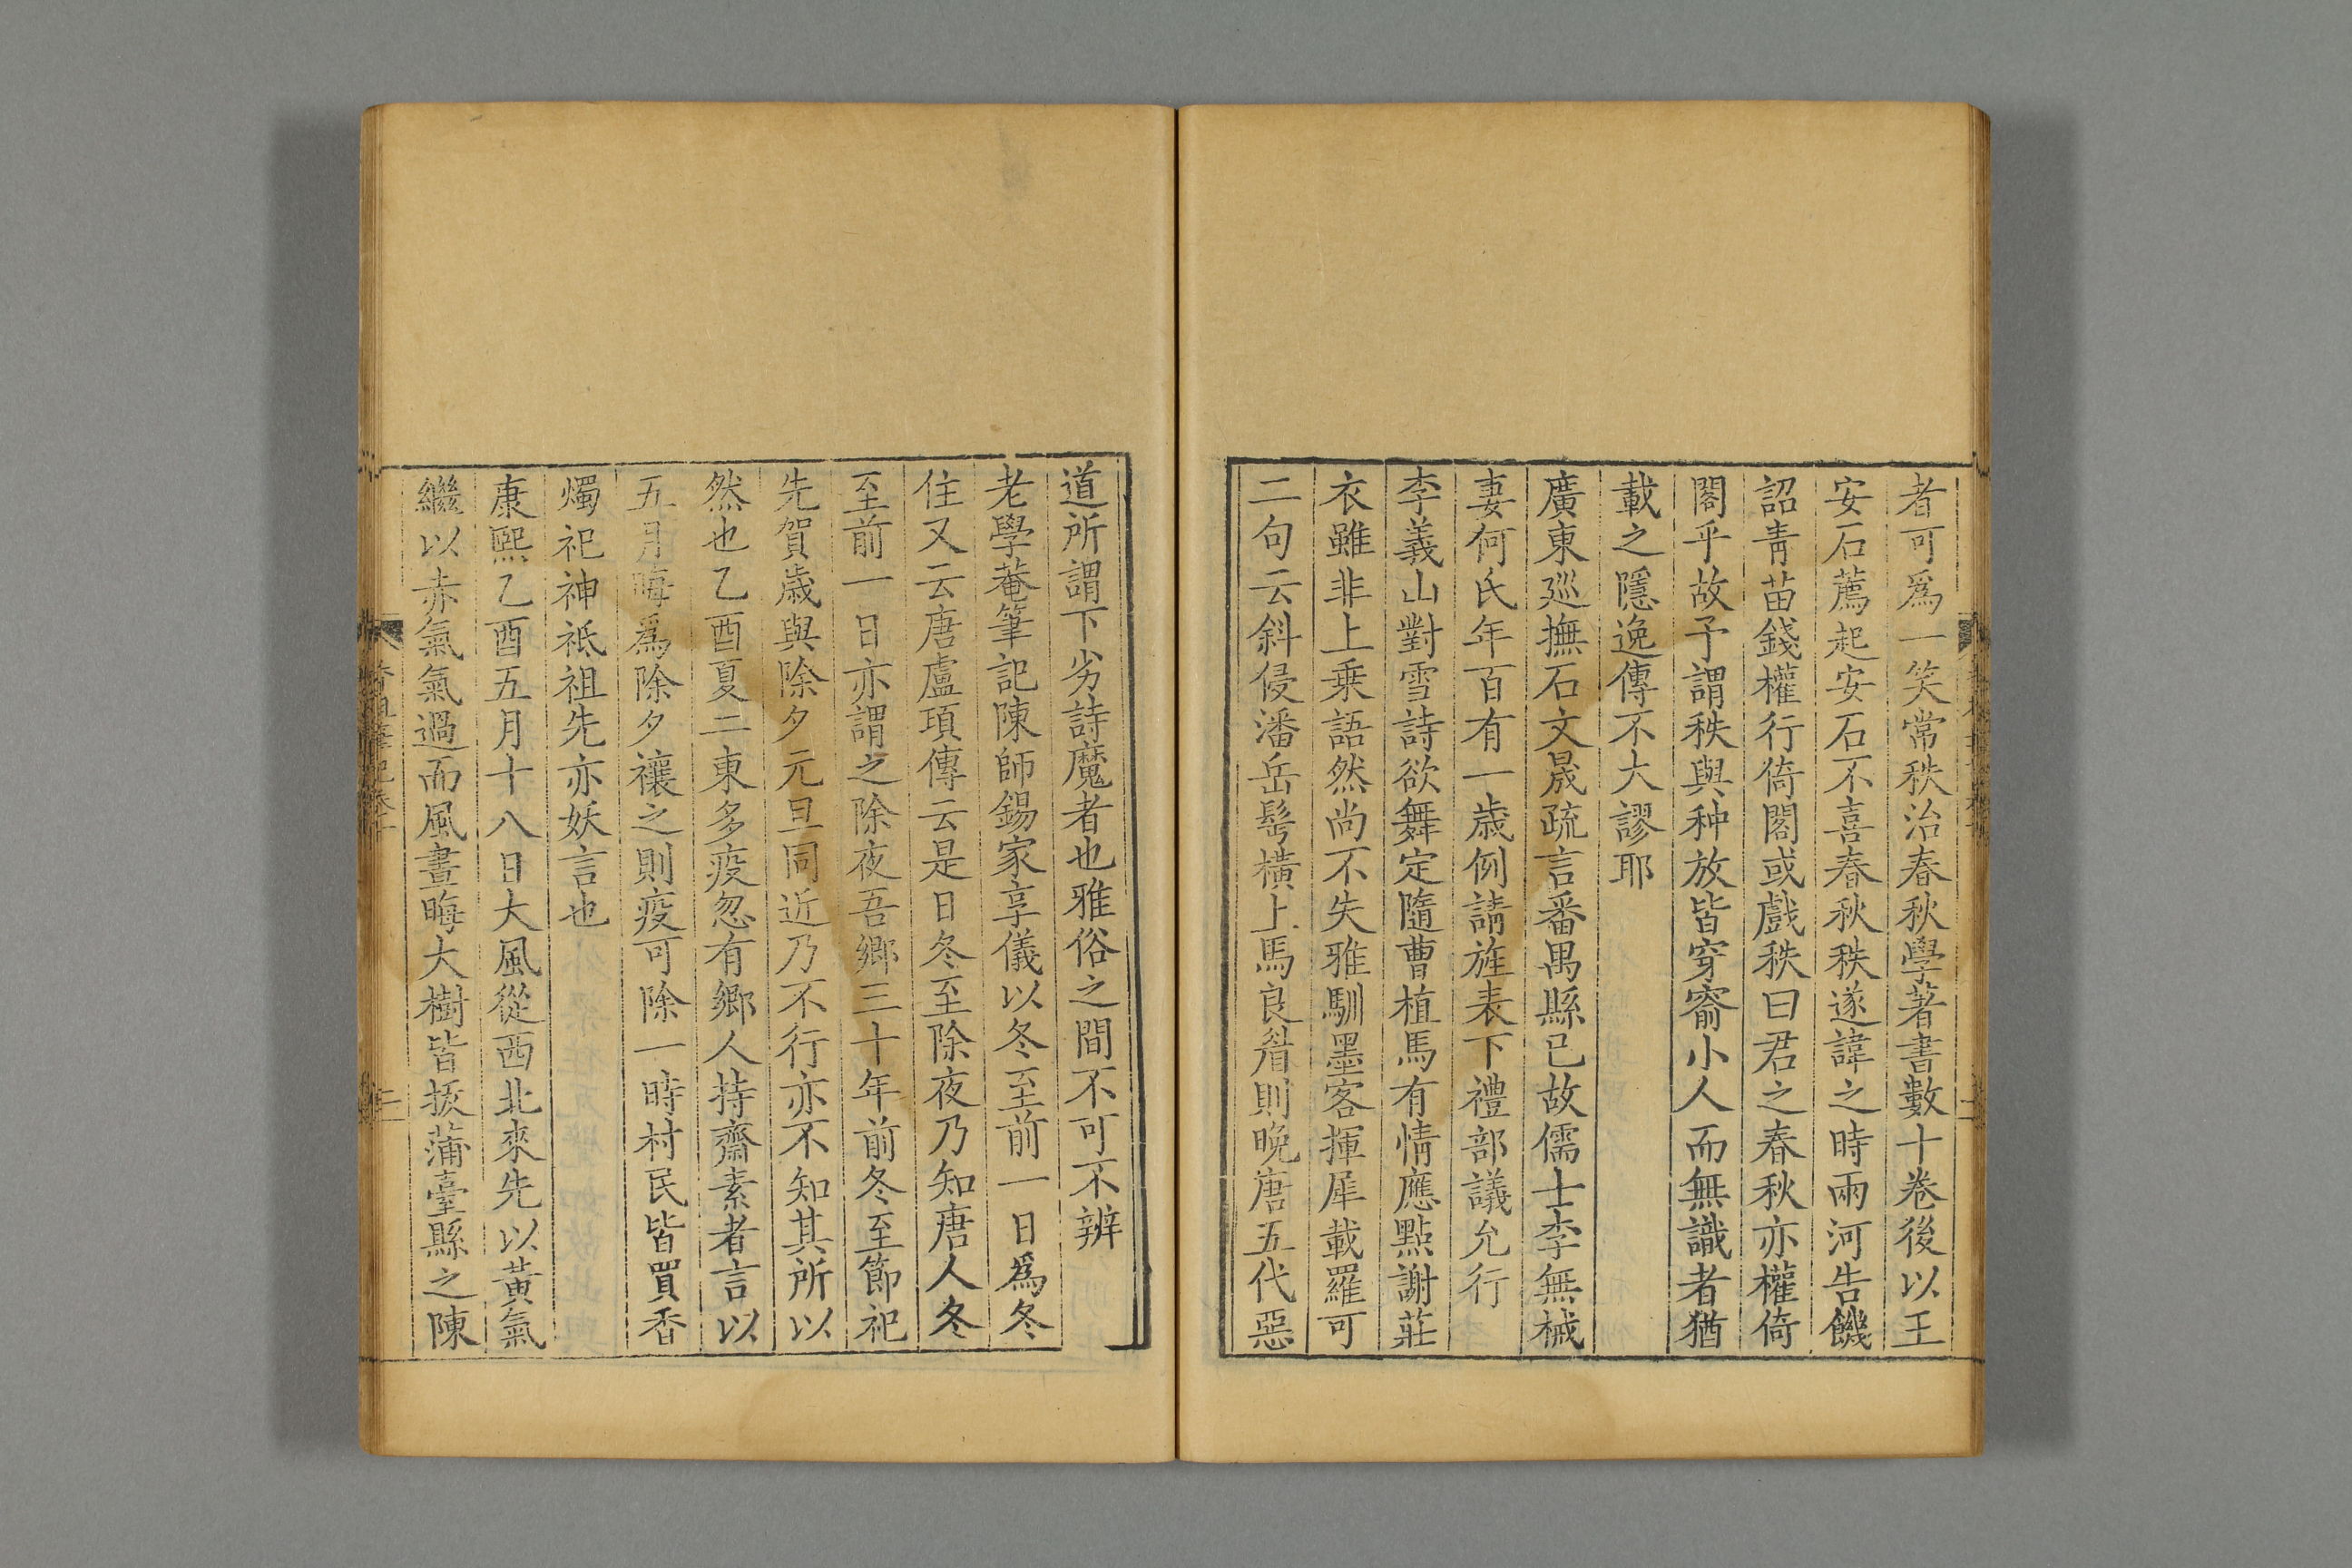 者可爲一笑常秩治春秋學著書數十卷後以王
安石薦起安石不喜春秋秩遂諱之時兩河告饑
詔青苗錢權行倚閣或戲秩曰君之春秋亦權倚
閣乎故予謂秩與种放皆穿窬小人而無識者猶
載之隱逸傳不大謬耶
廣東廵撫石文晟疏言番禺縣已故儒士李無械
妻何氏年百有一歲例請旌表下禮部議允行
李義山對雪詩欲舞定隨曹植馬有情應點謝莊
衣雖非上乗語然尚不失雅馴墨客揮犀載羅可
二句云斜侵潘岳髩橫上馬良眉則晚唐五代惡
道所謂下劣詩魔者也雅俗之間不可不辨
老學菴筆記陳師錫家享儀以冬至前一日爲冬
住又云唐盧項傳云是日冬至除夜乃知唐人冬
至前一日亦謂之除夜吾鄉三十年前冬至節祀
先賀歲與除夕元旦同近乃不行亦不知其所以
然也乙酉夏二東多疫忽有鄉人持齋素者言以
五月晦爲除夕禳之則疫可除一時村民皆買香
燭祀神祇祖先亦妖言也
康熙乙酉五月十八日大風從西北來先以黃氣
繼以赤氣氣過而風晝晦大樹皆拔蒲臺縣之陳
香祖筆記卷十
二